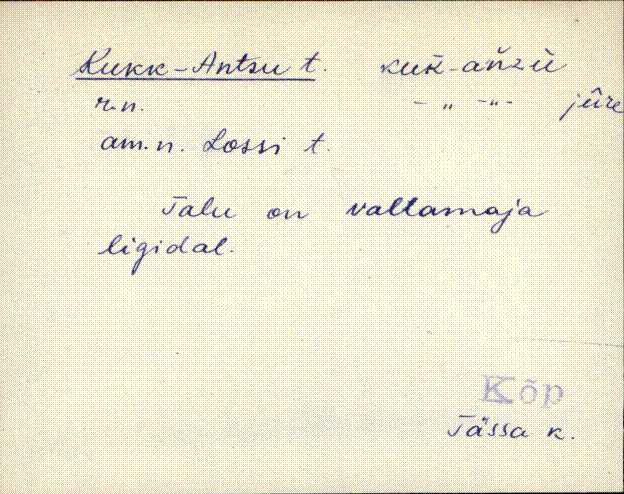 Kukk-Antsu t. kuk̆-ańzù
r.n. - " -"- jûre
am.n. Lossi t.
Talu on vallamaja
ligidal.
Kõp
Tässa k.